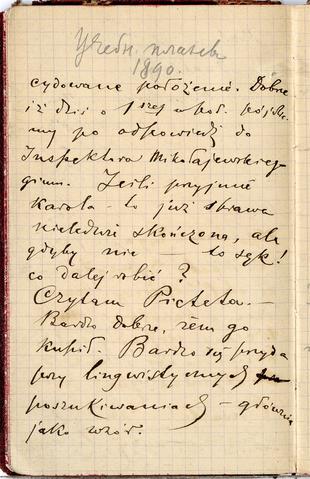 Учебн. платев
1890.
cydowane położenie. Dobrze
iż dziś o 1szej w poł. pójdzie-
my po odpowiedź do
Inspektora Mikołajewskiego
gimn. Jeśli przyjmie
Karola – to już sprawa
niekteduż skończona, ale
gdyby nie – to sęk!
co dalej robić?
Czytam Picteta. –
Bardzo dobrze, żem go
kupił. Bardzo się przyda
przy lingwistycznych
poszukiwaniach – głównie
jako wzór.